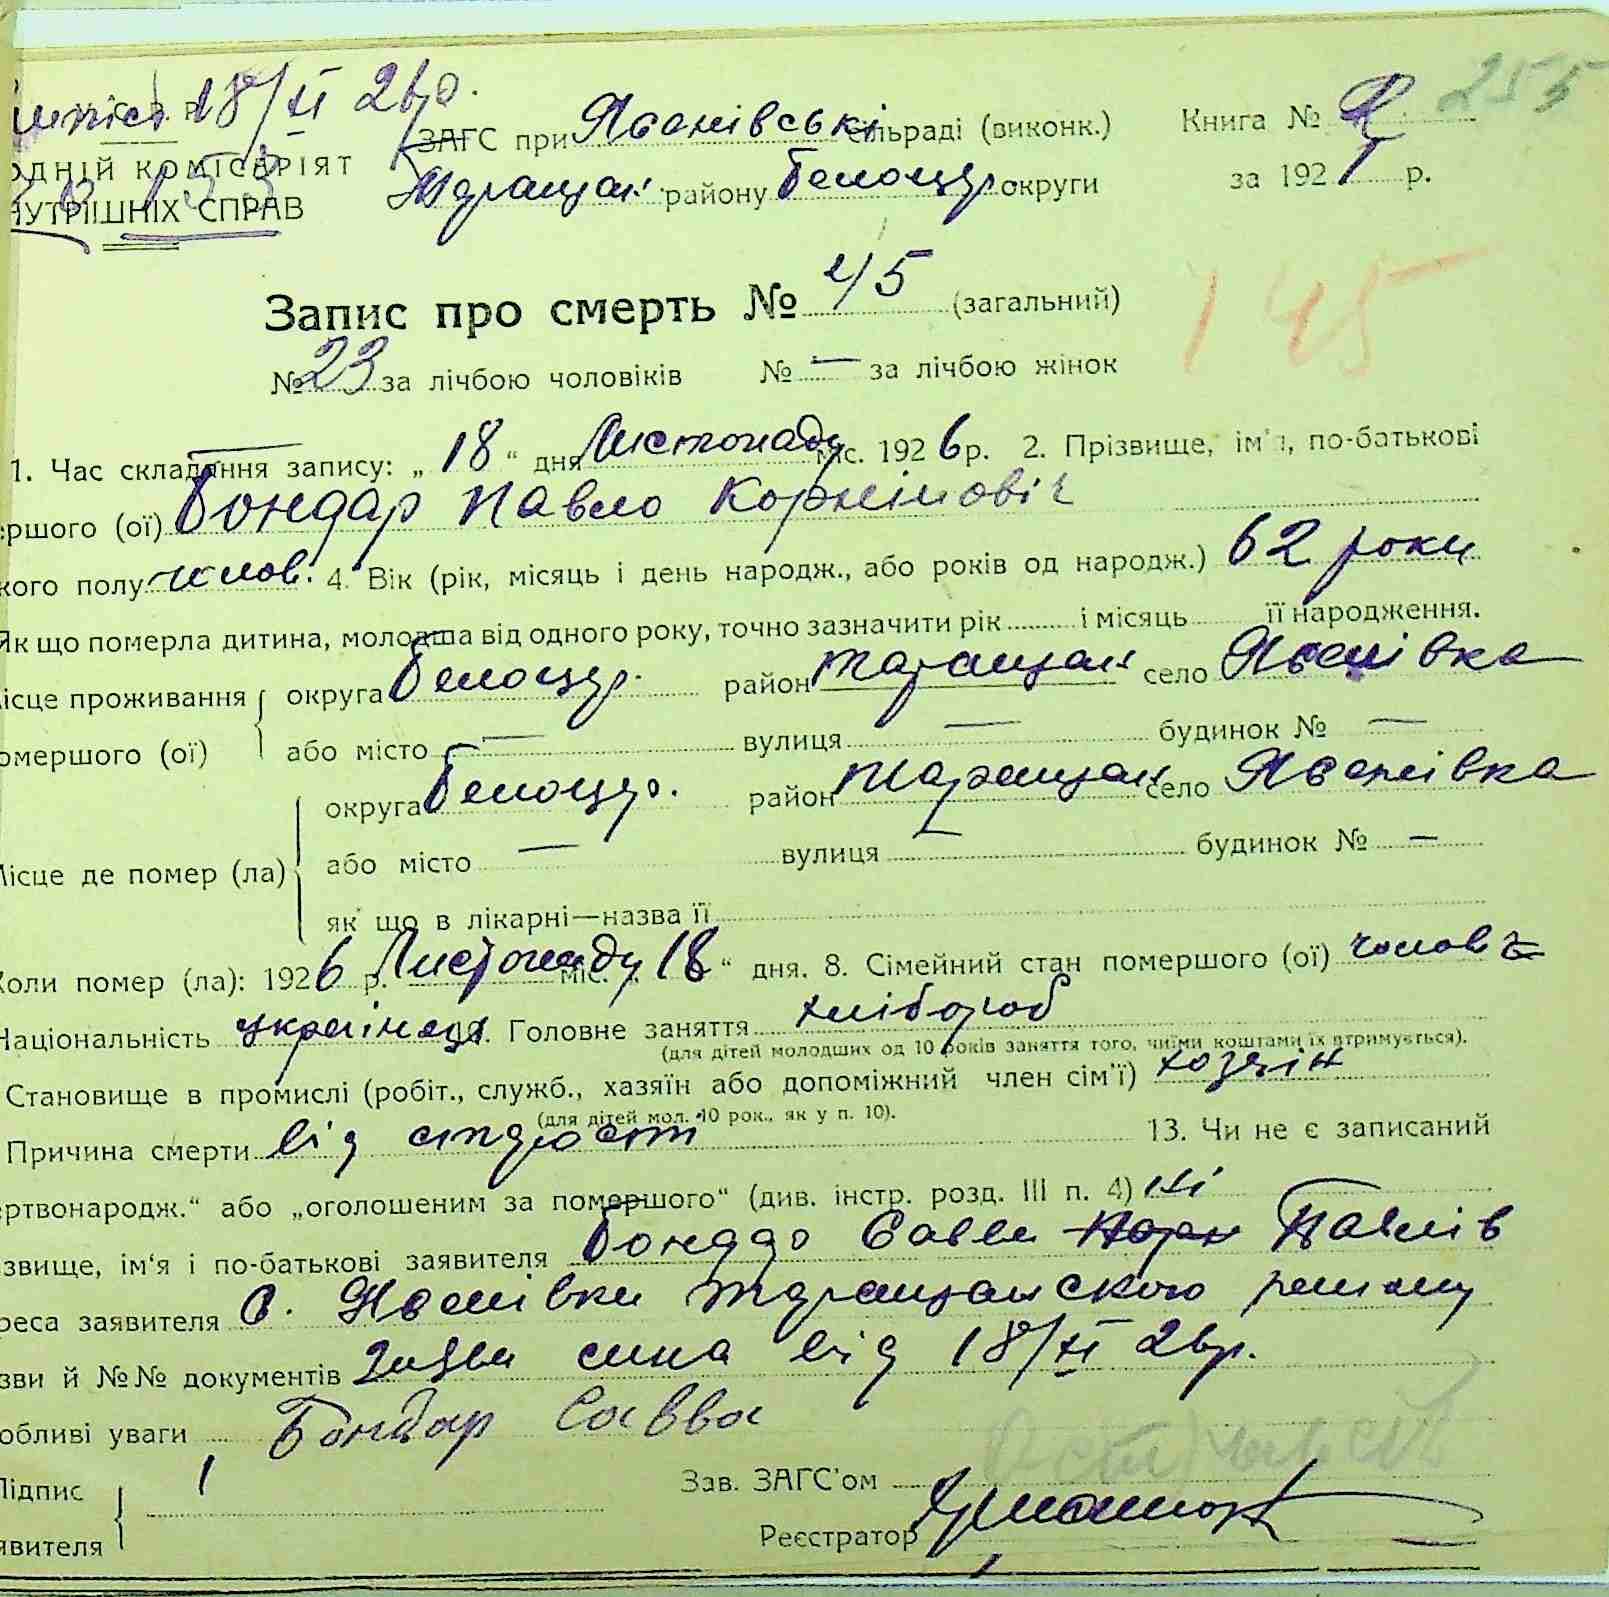 18/XI 26р. 255
У.С.Р.Р.
ЗАГС при Лісенівські сільраді (виконк.) Книга №
ОДНІЙ КОМІСЕРІЯТ
НУТРІШНІХ СПРАВ
Таращан. району Белоцер. округи за 192 р.
Запис про смерть № 45 (загальний)
145
№ 23 за лічбою чоловіків № — за лічбою жінок
1. Час складання запису: „ 18 “ дня Листопаду міс. 1926 р. 2. Прізвище, ім'я, по-батькові
ершого (ої) Бондар Павло Корнійовіч
кого полу чолов. 4. Вік (рік, місяць і день народж., або років од народж.) 62 роки
Як що померла дитина, молодша від одного року, точно зазначити рік і місяць її народження.
ісце проживання округа Белоцер. район Таращан. село
омершого (ої) або місто — вулиця — будинок № —
округа Белоцер. район Таращан. село
Місце де помер (ла) або місто — вулиця будинок № —
як що в лікарні—назва її
Коли помер (ла): 1926 р. Листопаду міс. „ 18 “ дня. 8. Сімейний стан помершого (ої)
Національність українец. Головне заняття хлібороб
(для дітей молодших од 10 років заняття того, чиїми коштами їх втримується).
Становище в промислі (робіт., служб., хазяїн або допоміжний член сім'ї) хозяін
(для дітей мол. 10 рок., як у п. 10).
Причина смерти від старості 13. Чи не є записаний
ертвонародж.“ або „оголошеним за помершого“ (див. інстр. розд. III п. 4) ні
звище, ім'я і по-батькові заявителя Бондар Савва Корн Павлів
реса заявителя с. Таращанского району
зви й №№ документів Заява сина від 18/XI 26р.
обливі уваги Бондар Савва
Підпис Зав. ЗАГС'ом
явителя Реєстратор